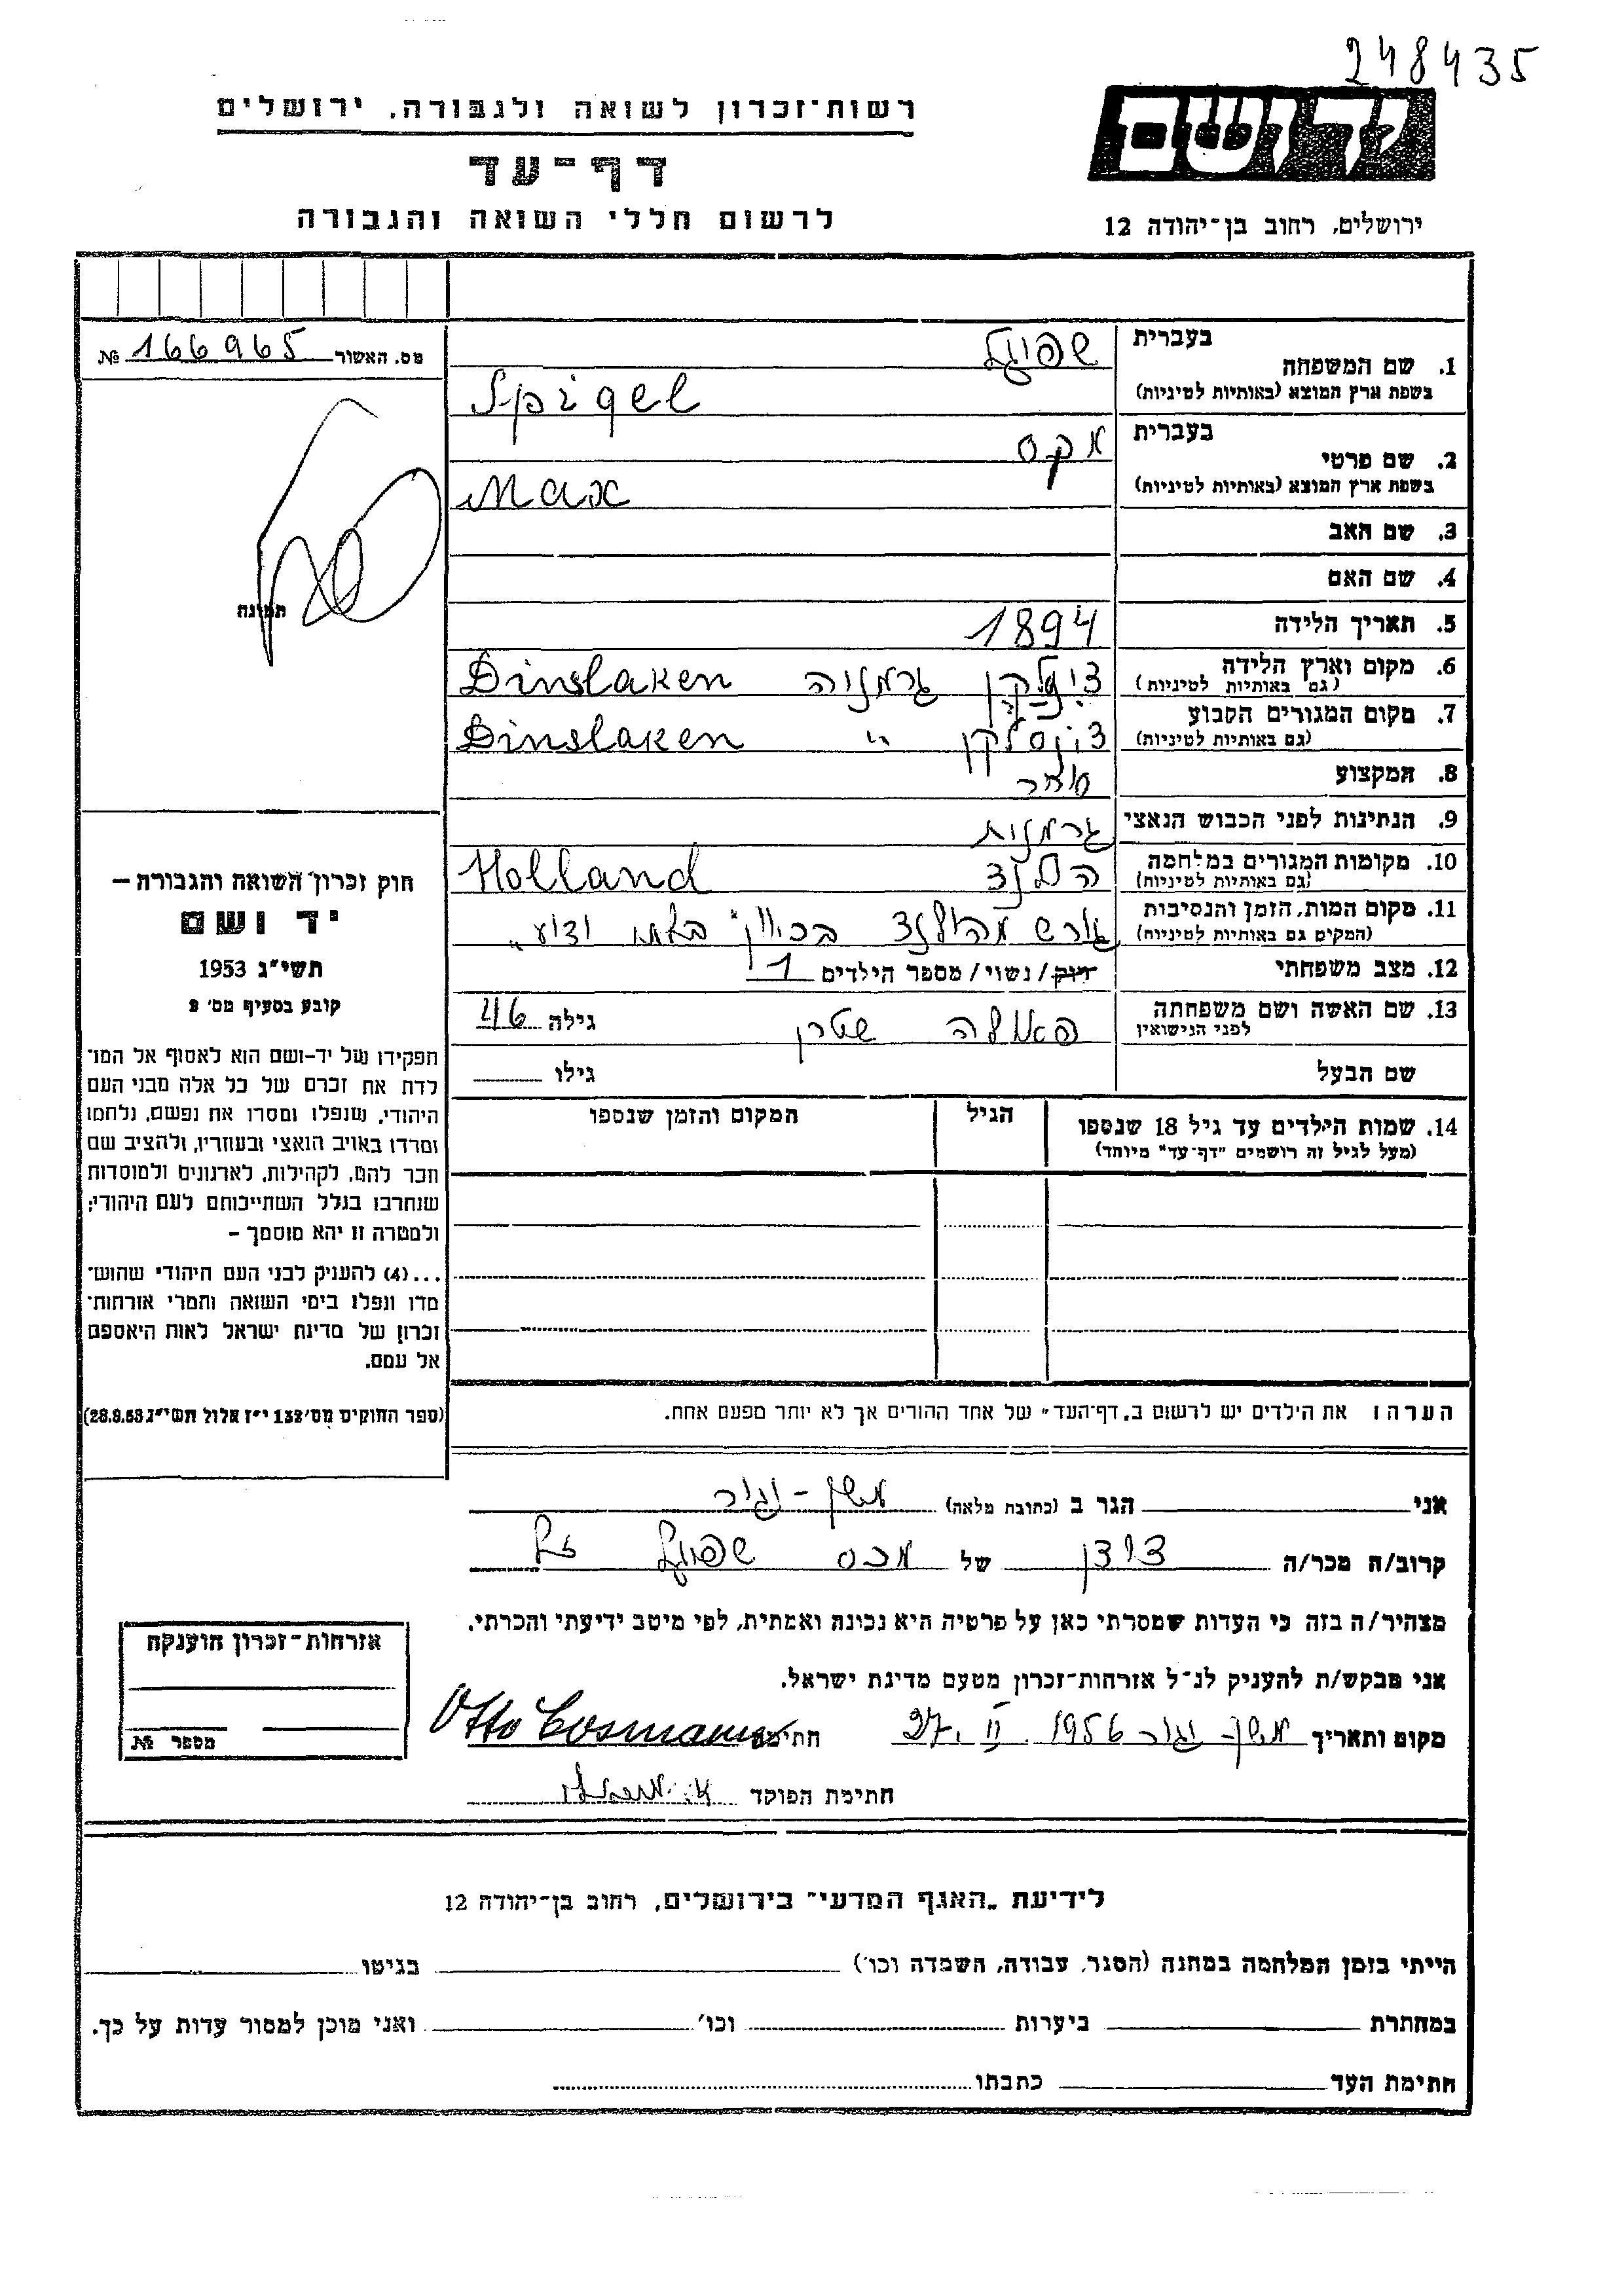 248435
יד ושם
רשות־זכרון לשואה ולגבורה, ירושלים
דף־עד
לרשום חללי השואה והגבורה
ירושלים, רחוב בן־יהודה 12
מס. האשור 166965 №
תמונה
חוק זכרון השואה והגבורה –
יד ושם
תשי״ג 1953
קובע בסעיף מס׳ 2
תפקידו של יד-ושם הוא לאסוף אל המו־
לדת את זכרם של כל אלה מבני העם
היהודי, שנפלו ומסרו את נפשם, נלחמו
ומרדו באויב הנאצי ובעוזריו, ולהציב שם
וזכר להם, לקהילות, לארגונים ולמוסדות
שנחרבו בגלל השתייכותם לעם היהודי;
ולמטרה זו יהא מוסמך –
...(4) להעניק לבני העם היהודי שהוש־
מדו ונפלו בימי השואה והמרי אזרחות־
זכרון של מדינת ישראל לאות היאספם
אל עמם.
(ספר החוקים מס׳ 132 י״ז אלול תשי״ג 28.8.53)
1. שם המשפחה
בעברית שפיגל
בשפת ארץ המוצא (באותיות לטיניות) Spigel
2. שם פרטי
בעברית מקס
בשפת ארץ המוצא (באותיות לטיניות) Max
3. שם האב
4. שם האם
5. תאריך הלידה 1894
6. מקום וארץ הלידה
(גם באותיות לטיניות) גרמניה Dinslaken
7. מקום המגורים הקבוע
(גם באותיות לטיניות) דינסלקן ״ Dinslaken
8. המקצוע סוחר
9. הנתינות לפני הכבוש הנאצי גרמנית
10. מקומות המגורים במלחמה
(גם באותיות לטיניות) הולנד Holland
11. מקום המות, הזמן והנסיבות
(המקום גם באותיות לטיניות) גורש מהולנד בכוון בלתי ידוע
12. מצב משפחתי רוק/נשוי/מספר הילדים 1
13. שם האשה ושם משפחתה
לפני הנישואין שטרן גילה 46
שם הבעל גילו
14. שמות הילדים עד גיל 18 שנספו הגיל המקום והזמן שנספו
(מעל לגיל זה רושמים "דף־עד" מיוחד)
הערה: את הילדים יש לרשום ב„דף־העד״ של אחד ההורים אך לא יותר מפעם אחת.
אני הגר ב (כתובת מלאה) משק-יגור
קרוב/ה מכר/ה דודן של מכס שפיגל ז״ל
מצהיר/ה בזה כי העדות שמסרתי כאן על פרטיה היא נכונה ואמתית, לפי מיטב ידיעתי והכרתי.
אני מבקש/ת להעניק לנ״ל אזרחות־זכרון מטעם מדינת ישראל.
מקום ותאריך משק-יגור 27. II. 1956 חתימה Otto Cosmann
חתימת הפוקד
אזרחות־זכרון הוענקה
מספר №
לידיעת „האגף המדעי״ בירושלים, רחוב בן־יהודה 12
הייתי בזמן המלחמה במחנה (הסגר, עבודה, השמדה וכו׳) בגיטו
במחתרת ביערות וכו׳ ואני מוכן למסור עדות על כך.
חתימת העד כתבתו